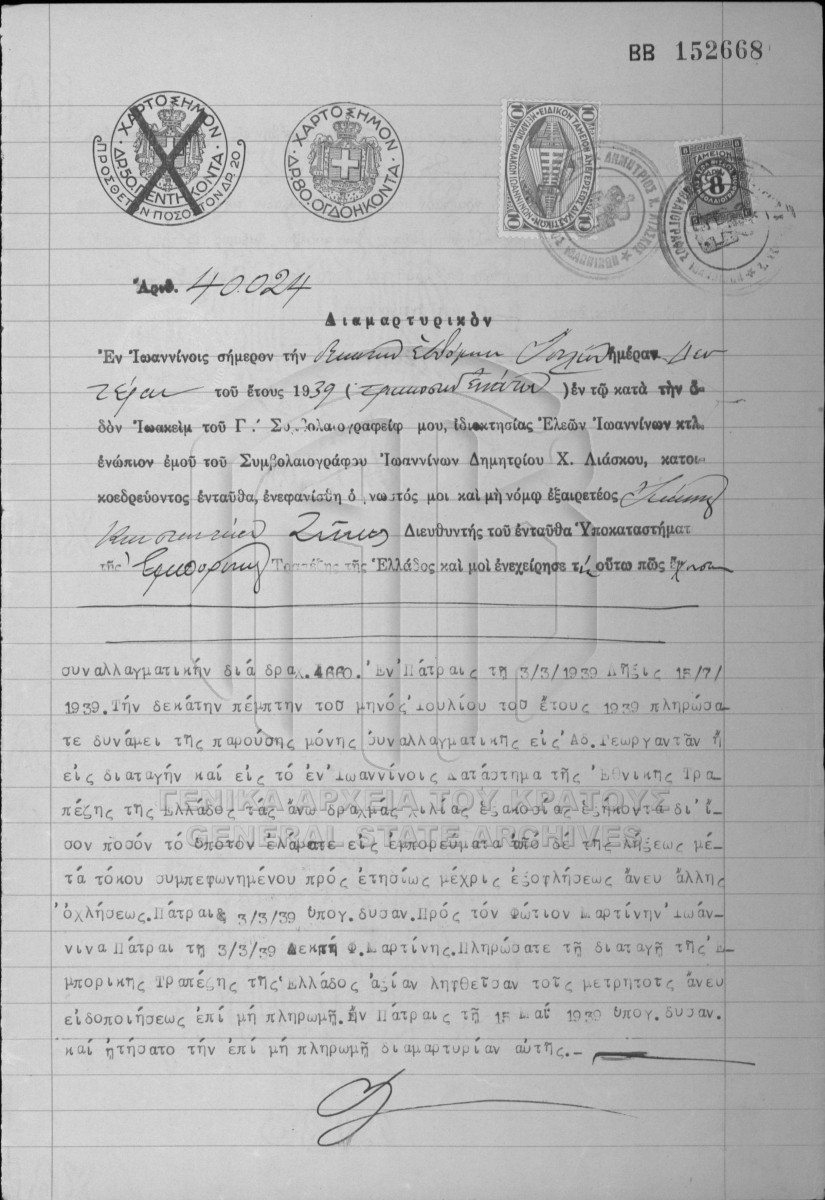 ΒΒ 152668
ΧΑΡΤΟΣΗΜΟΝ
ΔΡ.50.ΠΕΝΤΗΚΟΝΤΑ
ΠΡΟΣΘΕΤΟΝ ΠΟΣΟΣΤΟΝ ΔΡ.20
ΧΑΡΤΟΣΗΜΟΝ
ΔΡ.80.ΟΓΔΟΗΚΟΝΤΑ
10 10
10 10
8
Ἀριθ. 40.024
Διαμαρτυρικὸν
Ἐν Ἰωαννίνοις σήμερον τὴν εἰκοστὴν ἑβδόμην Ἰουλίου ἡμέραν
του ἔτους 1939 ( ) ἐν τῷ κατὰ τὴν ὁ-
δὸν Ἰωακεὶμ τοῦ Γ.' Συμβολαιογραφείῳ μου, ἰδιοκτησίας Ἐλεῶν Ἰωαννίνων κτλ.
ἐνώπιον ἐμοῦ τοῦ Συμβολαιογράφου Ἰωαννίνων Δημητρίου Χ. Λιάσκου, κατοι-
κοεδρεύοντος ἐνταῦθα, ἐνεφανίσθη ὁ γνωστός μοι καὶ μὴ νόμῳ ἐξαιρετέος
Διευθυντὴς τοῦ ἐνταῦθα Ὑποκαταστήματ
τῆς Ἐμπορικῆς Τραπέζης τῆς Ἑλλάδος καὶ μοὶ ἐνεχείρησε τὴν οὕτω πῶς ἔχουσαν
συναλλαγματικήν διά δραχ. 1660. Ἐν Πάτραις τῃ 3/3/1939 Λῆξις 15/7/
1939. Τήν δεκάτην πέμπτην τοῦ μηνός Ἰουλίου τοῦ ἔτους 1939 πληρώσα-
τε δυνάμει τῆς παρούσης μόνης συναλλαγματικῆς εἰς Ἀδ. Γεωργαντᾶν ἤ
εἰς διαταγήν καί εἰς τό ἐν Ἰωαννίνοις Κατάστημα τῆς Ἐθνικῆς Τρα-
πέζης τῆς Ἑλλάδος τάς ἄνω δραχμάς χιλίας ἑξακοσίας ἑξήκοντα δι' ἴ-
σον ποσόν τό ὁποῖον ἐλάβατε εἰς ἐμπορεύματα ἀπό δε τῆς λήξεως μέ-
τά τόκου συμπεφωνημένου πρός ἐτησίως μέχρις ἐξοφλήσεως ἄνευ ἄλλης
ὀχλήσεως. Πάτραις 3/3/39 ὑπογ. δυσαν. Πρός τόν Φώτιον Μαρτίνην Ἰωάν-
νινα Πάτραι τῃ 3/3/39 Δεκτή Φ. Μαρτίνης. Πληρώσατε τῇ διαταγῇ τῆς Ἐ-
μπορικῆς Τραπέζης τῆς Ἑλλάδος ἀξίαν ληφθεῖσαν τοῖς μετρητοῖς ἄνευ
εἰδοποιήσεως ἐπί μή πληρωμῇ. Ἐν Πάτραις τῇ 15 Μαΐ 1939 ὑπογ. δυσαν.
καί ᾐτήσατο τήν ἐπί μή πληρωμῇ διαμαρτυρίαν αὐτῆς.-
ΓΕΝΙΚΑ ΑΡΧΕΙΑ ΤΟΥ ΚΡΑΤΟΥΣ
GENERAL STATE ARCHIVES